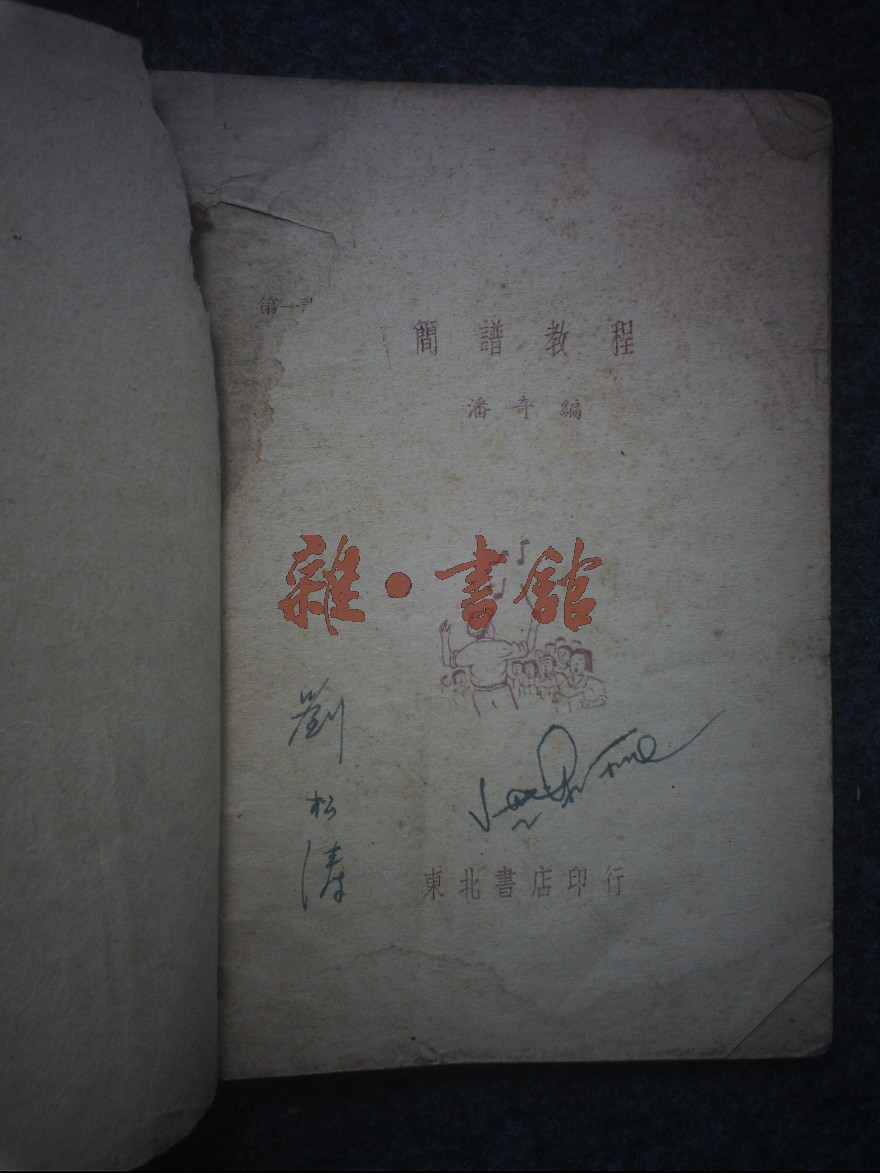 第一
簡譜教程
潘奇編
雜·書館
劉松涛
東北書店印行